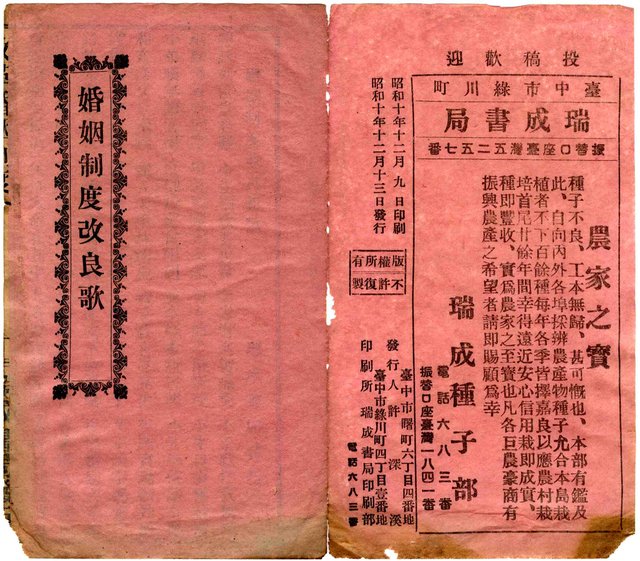 婚姻制度改良歌
投稿歡迎
臺中市綠川町
瑞成書局
振替口座臺灣五二五七番
農家之寶
種子不良、工本無歸、甚可慨也、本部有鑑及
此、自向內外各埠採辨農產物種子尤合本島栽
植者不下百餘種每年各季皆擇嘉良以應農村栽
培首尾廿餘年間幸得遠近安心信用栽即成實、
種即豐收、實爲農家之至寶也凡各巨農豪商有
振興農產之希望者請即賜顧爲幸
瑞成種子部
電話六八三番
振替口座臺灣一八四一番
昭和十年十二月九日印刷
昭和十年十二月十三日發行
版權所有
不許復製
臺中市曙町六丁目四番地
發行人許深溪
臺中市綠川町四丁目壹番地
印刷所瑞成書局印刷部
電話六八三番